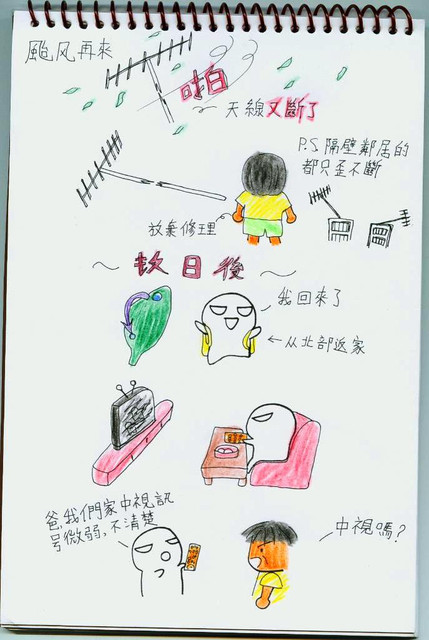 颱风再來
啪
天線又斷了
P.S.隔壁鄰居的
都只歪不斷
放棄修理
~數日後~
我回來了
←从北部返家
爸,我們家中視訊
号微弱,不清楚
中視嗎?